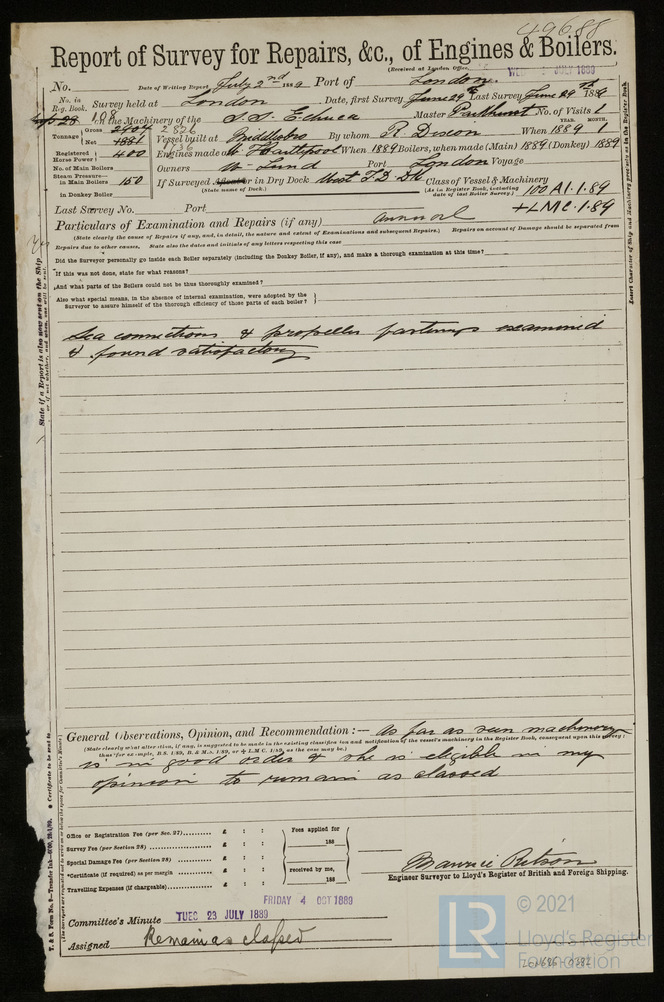 49688
Report of Survey for Repairs, &c., of Engines & Boilers.
(Received at London Office, WED 3 JULY 1889
No. Date of Writing Report July 2nd 1889 Port of London
No. in Reg. Book. Survey held at London Date, first Survey June 29th Last Survey June 29th 1889
108 on the Machinery of the S.S. Echuca Master No. of Visits 1
Tonnage { Gross 2904 2826 Net 1881 1836 Vessel built at Middlesbro By whom R Dixon When 1889 YEAR. 1 MONTH.
Registered Horse Power } 400 Engines made at W. Hartlepool When 1889 Boilers, when made (Main) 1889 (Donkey) 1889
No. of Main Boilers Owners W. Lund Port London Voyage
Steam Pressure— in Main Boilers 150 If Surveyed Afloat or in Dry Dock West I.D. DK Class of Vessel & Machinery 100 A1. 1.89
in Donkey Boiler (State name of Dock.) (As in Register Book, including date of last Boiler Survey.)
Last Survey No. Port +LMC. 1.89
Particulars of Examination and Repairs (if any) annual Repairs on account of Damage should be separated from
(State clearly the cause of Repairs if any, and, in detail, the nature and extent of Examinations and subsequent Repairs.)
Repairs due to other causes. State also the dates and initials of any letters respecting this case
Did the Surveyor personally go inside each Boiler separately (including the Donkey Boiler, if any), and make a thorough examination at this time?
If this was not done, state for what reasons?
And what parts of the Boilers could not be thoroughly examined?
Also what special means, in the absence of internal examination, were adopted by the
Surveyor to assure himself of the thorough efficiency of those parts of each boiler?
Sea connections & propeller fastenings examined
& found satisfactory
General Observations, Opinion, and Recommendation:— As far as seen machinery
(State clearly what alteration, if any, is suggested to be made in the existing classification and notification of the vessel's machinery in the Register Book, consequent upon this survey:
thus for example, B.S. 1/89, B. & M.S. 1/89, or + L.M.C. 1/89, as the case may be.)
is in good order & she is eligible in my
opinion to remain as classed
Office or Registration Fee (per Sec. 27) £ : :
Survey Fee (per Section 28) £ : :
Special Damage Fee (per Section 28) £ : :
*Certificate (if required) as per margin £ : :
Travelling Expenses (if chargeable) £ : :
Fees applied for
188
received by me,
188
Maurice Ritson
Engineer Surveyor to Lloyd's Register of British and Foreign Shipping.
FRIDAY 4 OCT 1889
Committee's Minute TUES 23 JULY 1889
Assigned Remain as classed
State if a Report is also now sent on the Ship
or if not whether, and when, one will be sent.
Insert Character of Ship and Machinery precisely as in the Register Book.
T. & S. Form No. 9—Transfer Ink
Certificate to be sent to
LR
© 2021
Lloyd's Register
Foundation